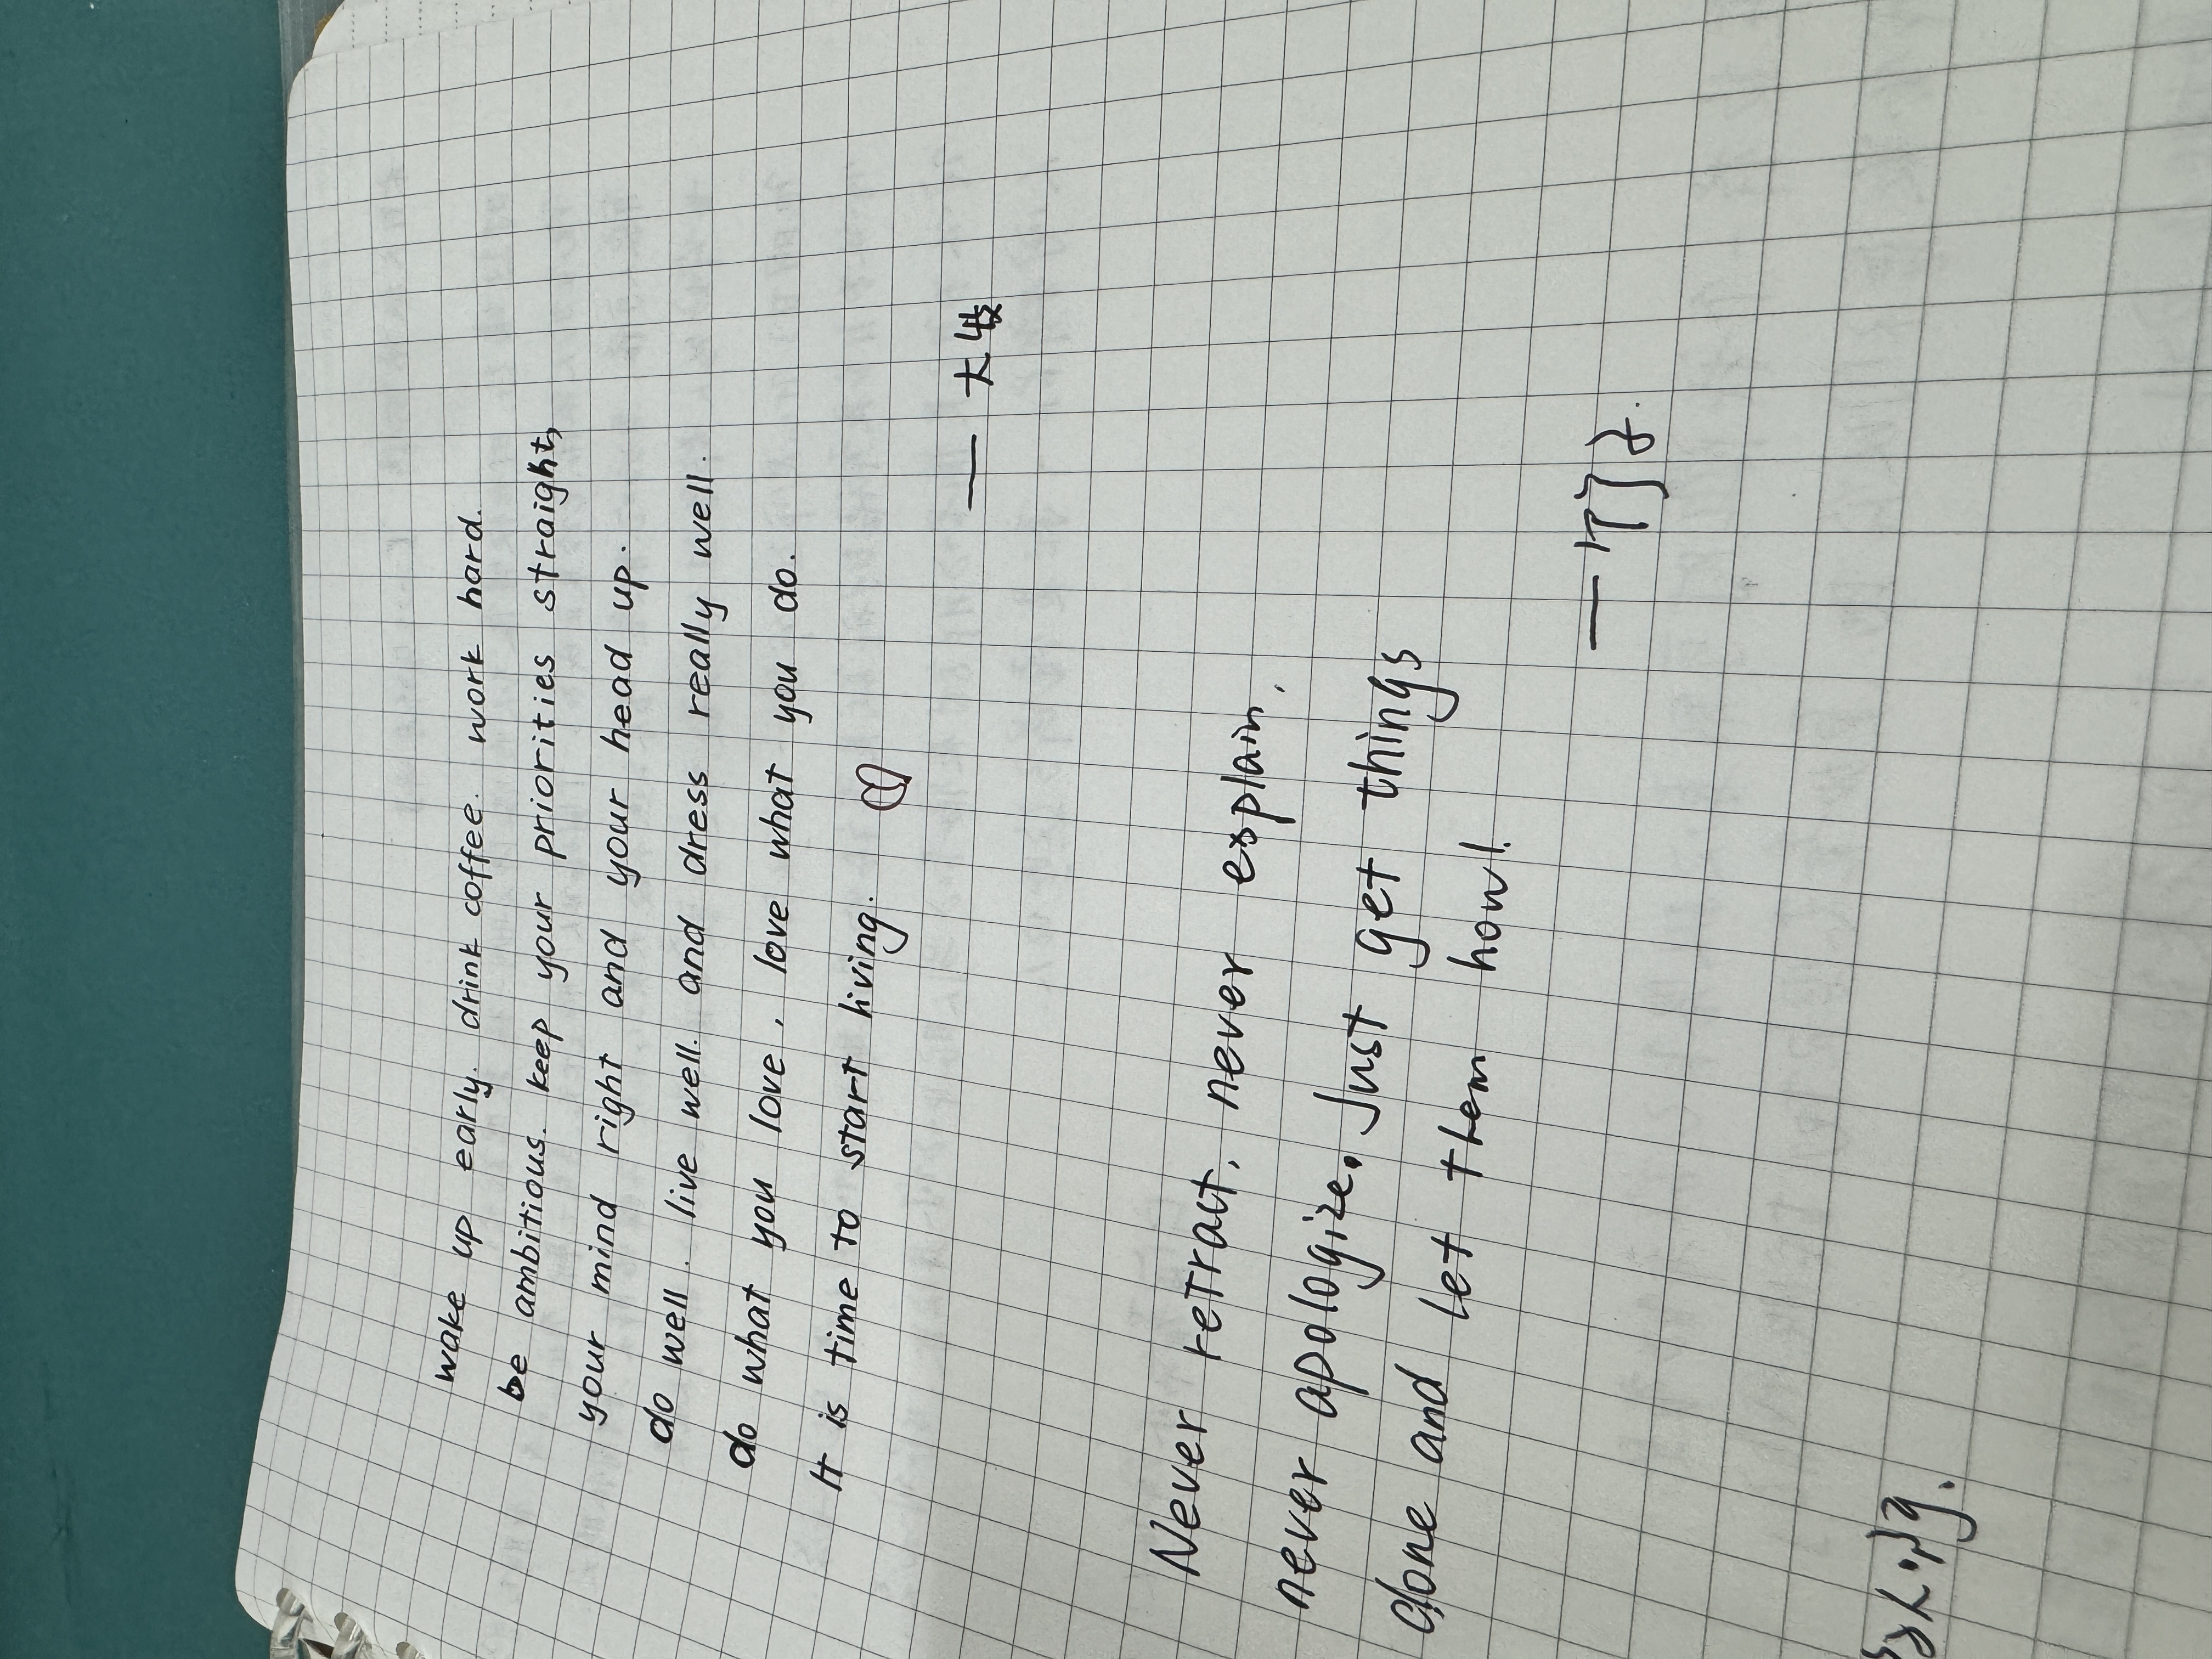 wake up early. drink coffee. work hard.
be ambitious. keep your priorities straight,
your mind right and your head up.
do well. live well. and dress really well.
do what you love, love what you do.
It is time to start living.
— 大
Never retract, never explain,
never apologize. Just get things
done and let them howl.